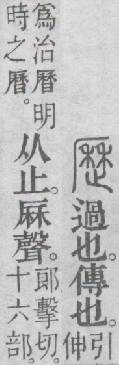 歷過也。傳也。引
伸
爲治曆明
時之曆。
从止。厤聲。郎擊切。
十六部。